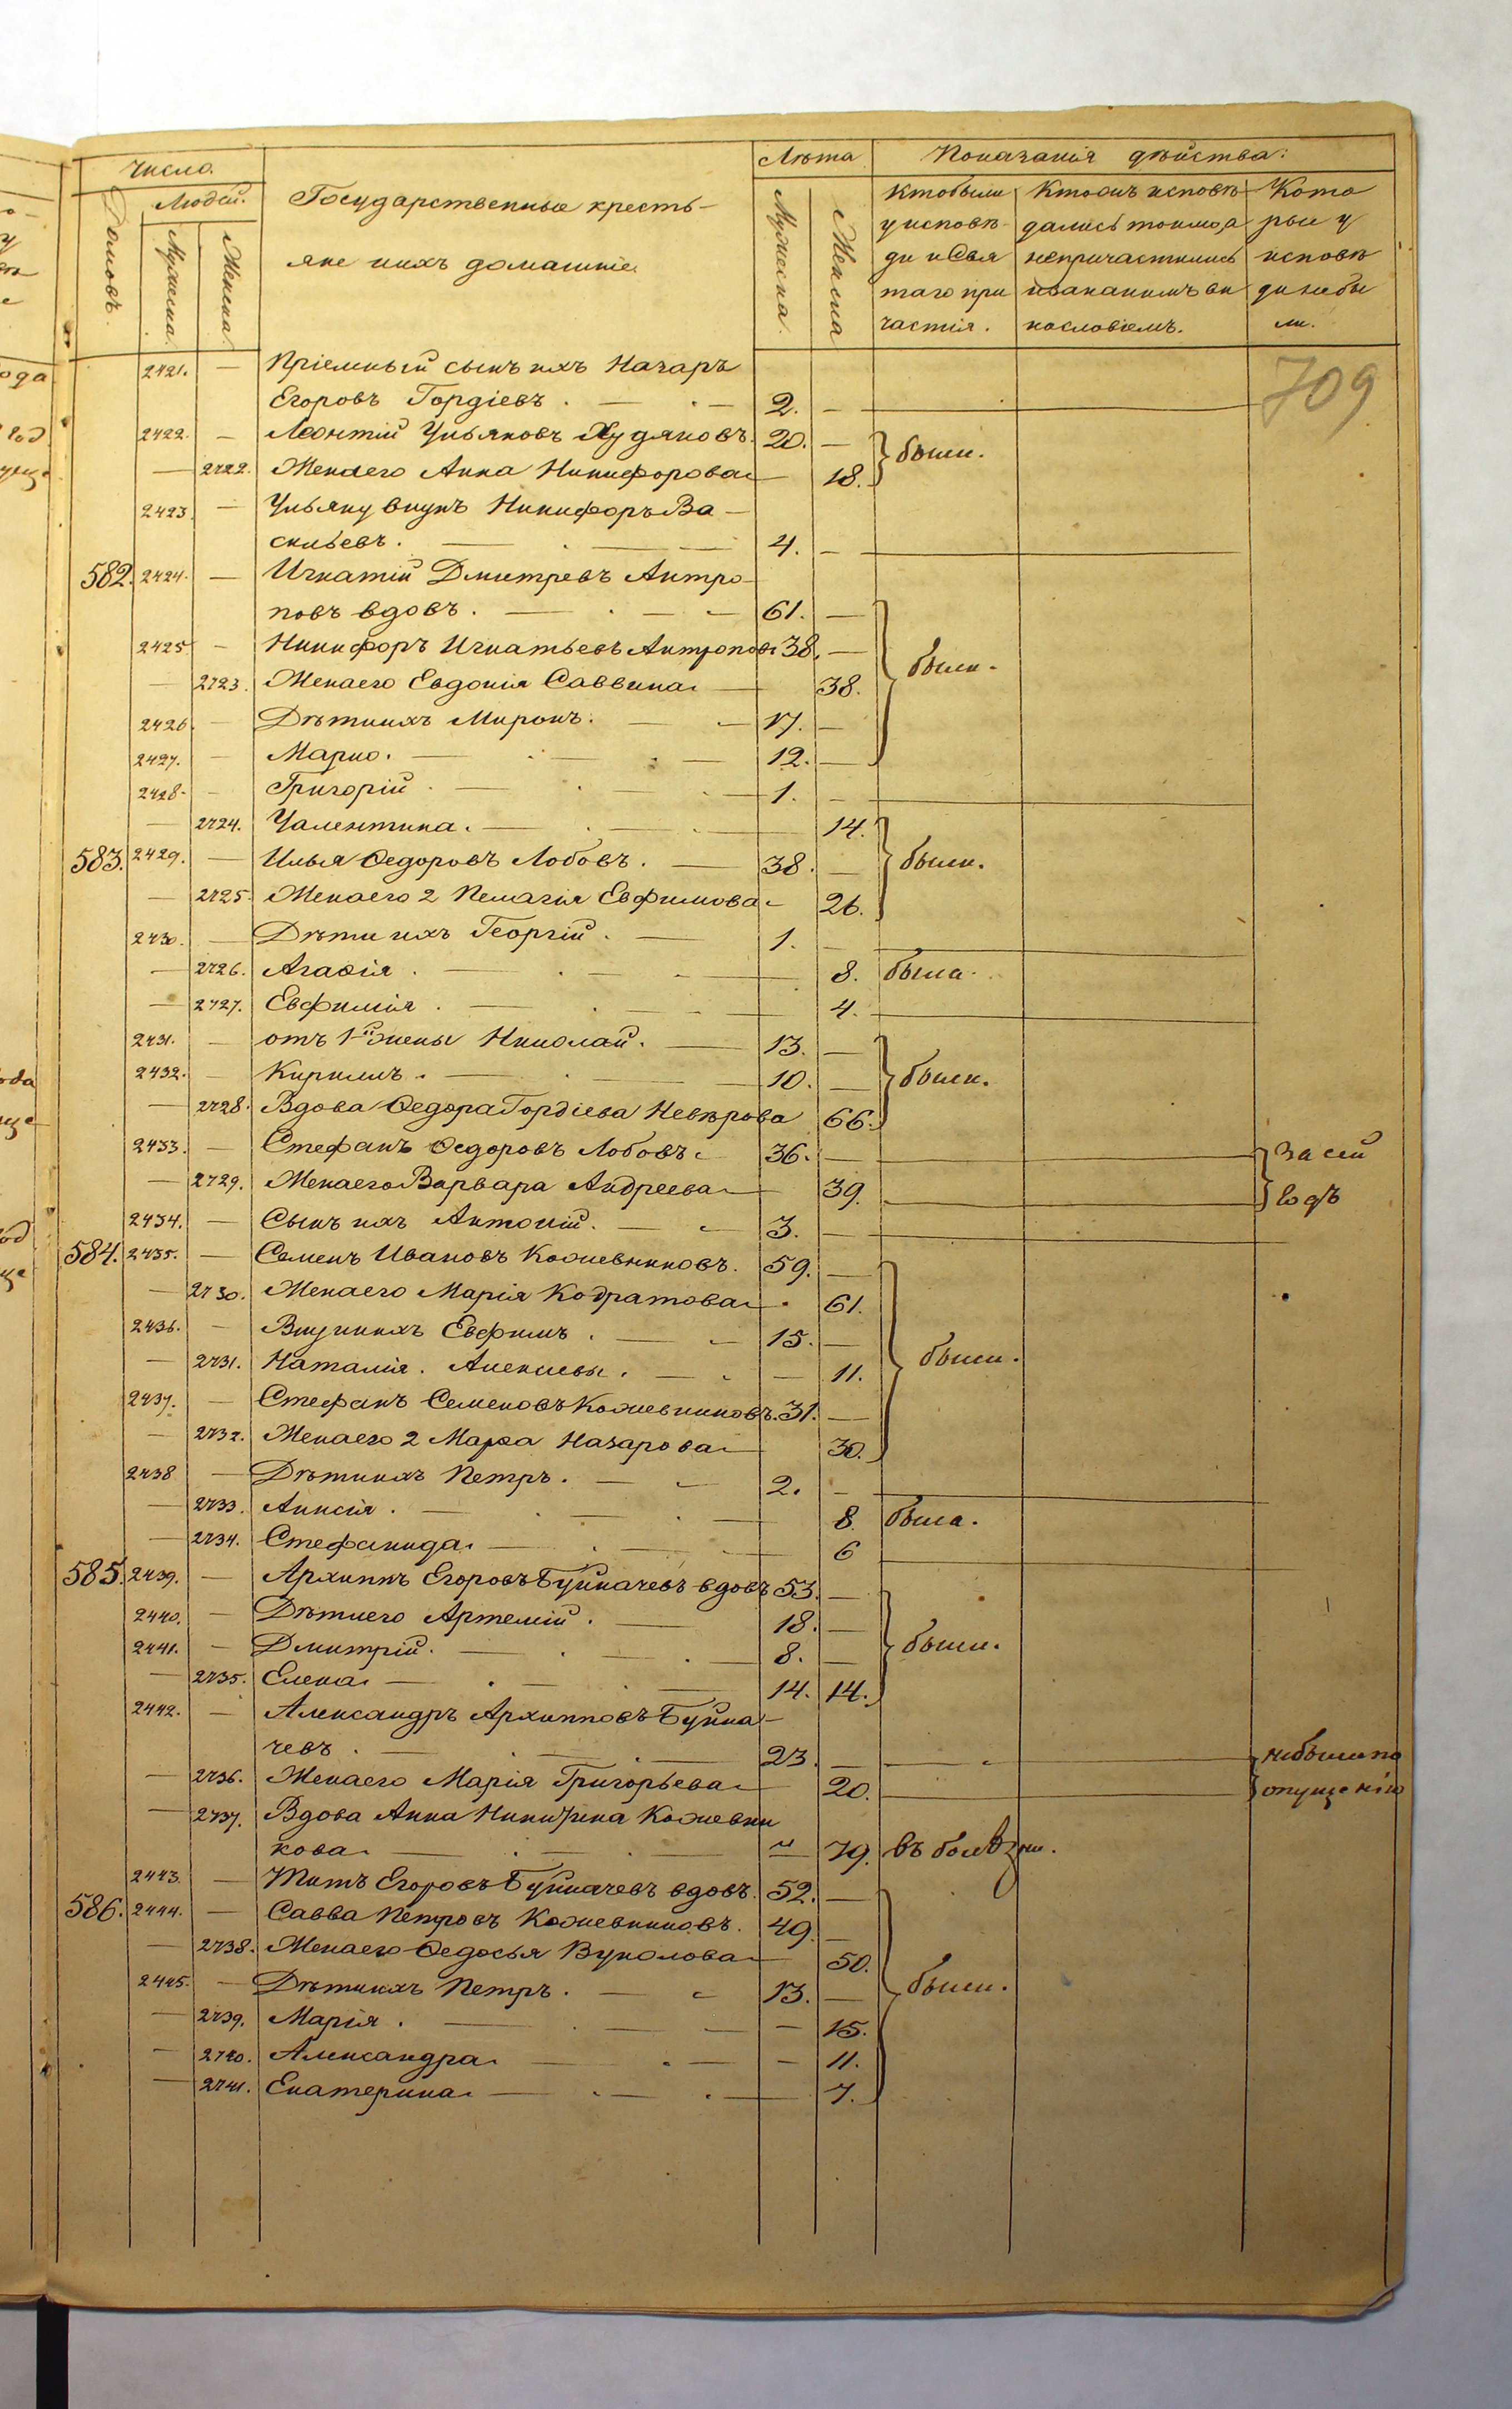 Число. Лѣта Показанія дѣйства:
Домовъ. Людей. Мужеска. Женска. Государственные кресть-
яне ихъ домашніе
Мужеска. Женска
Кто были
у исповѣ-
ди и Свя
таго при
частія.
Кто онъ исповѣ
дались токмо, а
непричастились
и за какимъ ви
нословіемъ.
Кото
рые у
исповѣ
ди небы
ли.
709
2421. — Пріемный сынъ ихъ Назаръ
Егоровъ Гордіевъ. 2. —
2422. — Леонтій Ульяновъ Худяковъ. 20. —
были.
— 2722. Жена его Анна Никифорова 18.
2423. — Ульяну внукъ Никифоръ Ва-
сильевъ. 4. —
582. 2424. — Игнатій Дмитревъ Антро-
повъ вдовъ. 61. —
2425 — Никифоръ Игнатьевъ Антроповъ 38. —
были.
— 2723. Жена его Евдокія Саввина 38.
2426. — Дѣти ихъ Миронъ. 17. —
2427. — Марко. 12. —
2428. — Григорій 1. —
— 2724. Уалентина. 14.
583. 2429. — Илья Ѳедоровъ Лобовъ. 38. —
были.
— 2725. Жена его 2 Пелагія Евфимова 26.
2430. — Дѣти ихъ Георгій. 1. —
— 2726. Агафія. 8. была.
— 2727. Евфимія. 4.
2431. — отъ 1й жены Николай. 13. —
2432. — Кириллъ. 10. —
были.
— 2728. Вдова Ѳедора Гордіева Невѣрова 66.
2433. — Стефанъ Ѳедоровъ Лобовъ. 36. — за сей
— 2729. Жена его Варвара Андреева 39. годъ
2434. — Сынъ ихъ Антоній. 3. —
584. 2435. — Семенъ Ивановъ Кожевниковъ. 59. —
— 2730. Жена его Марія Кодратова 61.
2436. — Внуки ихъ Евфимъ. 15. —
были.
— 2731. Наталія. Алексѣевы. — 11.
2437. — Стефанъ Семеновъ Кожевниковъ. 31. —
— 2732. Жена его 2 Марѳа Назарова 30.
2438 — Дѣти ихъ Петръ. 2. —
— 2733. Анисія. 8. была.
— 2734. Стефанида. 6
585. 2439. — Архиппъ Егоровъ Буйначевъ вдовъ 53. —
2440. — Дѣти его Артемій. 18. —
были.
2441. — Дмитрій. 8. —
— 2735. Елена 14. 14.
2442. — Александръ Архипповъ Буйна-
чевъ. 23. — небыли по
— 2736. Жена его Марія Григорьева 20. опущенію
— 2737. Вдова Анна Никитина Кожевни
кова. — 79. въ болѣзни.
2443. — Титъ Егоровъ Буйначевъ вдовъ. 52. —
586. 2444. — Савва Петровъ Кожевниковъ. 49. —
— 2738. Жена его Ѳедосья Вуколова 50.
2445. — Дѣти ихъ Петръ. 13. —
были.
— 2739. Марія. — 15.
— 2740. Александра. — 11.
— 2741. Екатерина. 7.